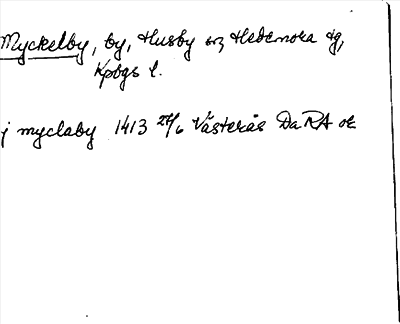 Myckelby, by, Husby sn, Hedemora tg,
Kpbgs l.
j myclaby 1413 24/6 Västerås DaRA or